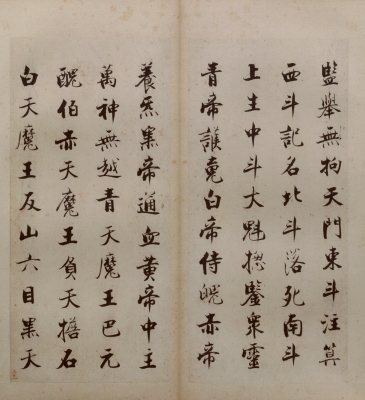 監舉無拘天門東斗注筭
西斗記名北斗落死南斗
上生中斗大魁揔鑒衆靈
青帝護魂白帝侍魄赤帝
養炁黑帝通血黃帝中主
萬神無越青天魔王巴元
醜伯赤天魔王負天擔石
白天魔王反山六目黑天